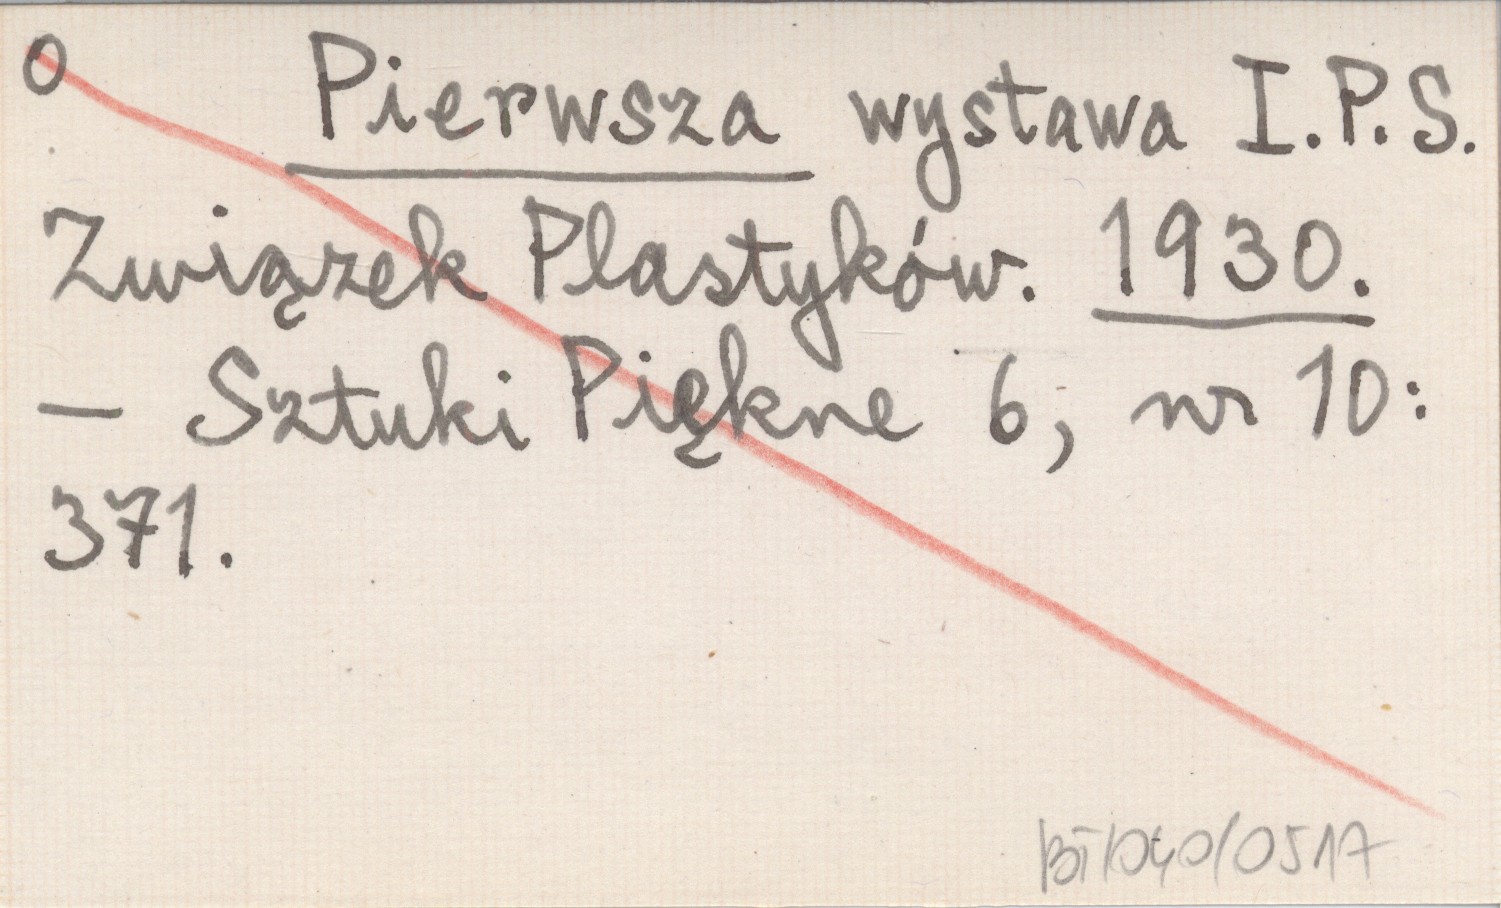 O Pierwsza wystawa I.P.S.
Związek Plastyków. 1930.
— Sztuki Piękne 6, nr 10:
371.
BT/040/0517